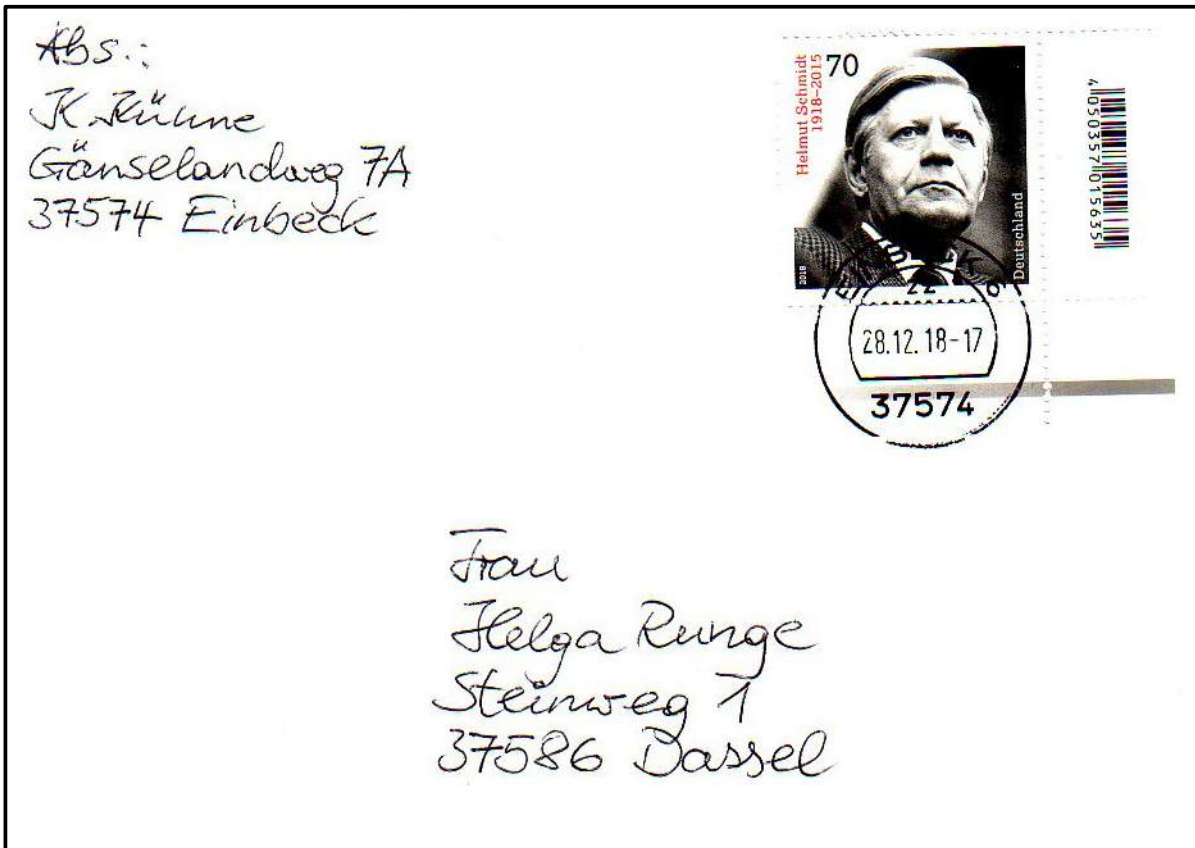 Abs.:
K. Kühne
Gänselandweg 7A
37574 Einbeck
Helmut Schmidt
1918–2015
70
Deutschland
2018
4 050357 015635
EINBECK
22
28.12.18-17
37574
Frau
Helga Runge
Steinweg 1
37586 Dassel